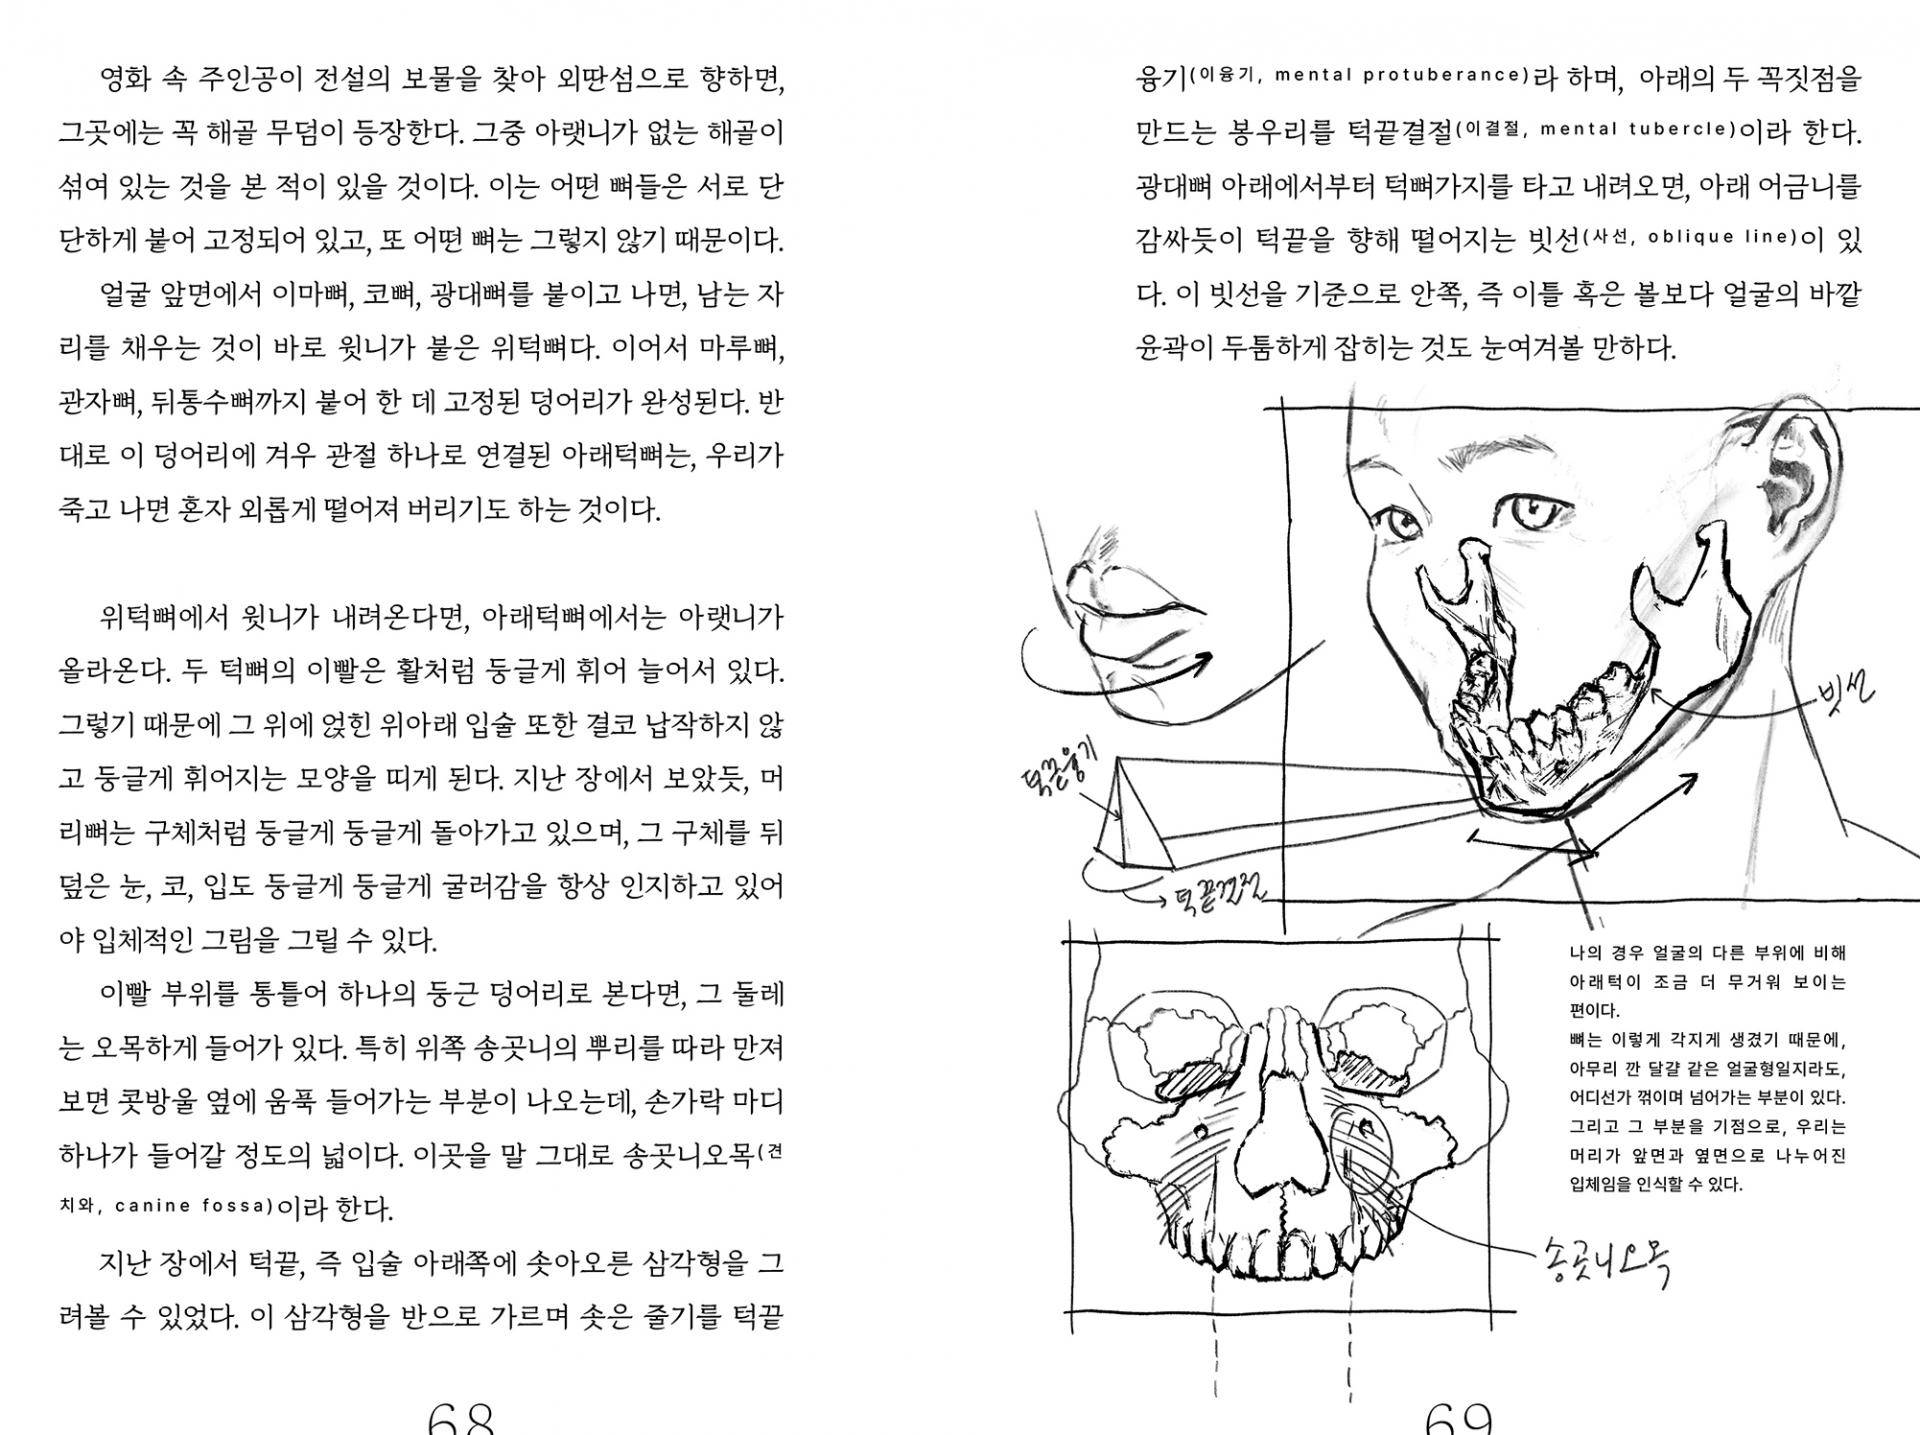 영화 속 주인공이 전설의 보물을 찾아 외딴섬으로 향하면,
그곳에는 꼭 해골 무덤이 등장한다. 그중 아랫니가 없는 해골이
섞여 있는 것을 본 적이 있을 것이다. 이는 어떤 뼈들은 서로 단
단하게 붙어 고정되어 있고, 또 어떤 뼈는 그렇지 않기 때문이다.
얼굴 앞면에서 이마뼈, 코뼈, 광대뼈를 붙이고 나면, 남는 자
리를 채우는 것이 바로 윗니가 붙은 위턱뼈다. 이어서 마루뼈,
관자뼈, 뒤통수뼈까지 붙어 한 데 고정된 덩어리가 완성된다. 반
대로 이 덩어리에 겨우 관절 하나로 연결된 아래턱뼈는, 우리가
죽고 나면 혼자 외롭게 떨어져 버리기도 하는 것이다.
위턱뼈에서 윗니가 내려온다면, 아래턱뼈에서는 아랫니가
올라온다. 두 턱뼈의 이빨은 활처럼 둥글게 휘어 늘어서 있다.
그렇기 때문에 그 위에 얹힌 위아래 입술 또한 결코 납작하지 않
고 둥글게 휘어지는 모양을 띠게 된다. 지난 장에서 보았듯, 머
리뼈는 구체처럼 둥글게 둥글게 돌아가고 있으며, 그 구체를 뒤
덮은 눈, 코, 입도 둥글게 둥글게 굴러감을 항상 인지하고 있어
야 입체적인 그림을 그릴 수 있다.
이빨 부위를 통틀어 하나의 둥근 덩어리로 본다면, 그 둘레
는 오목하게 들어가 있다. 특히 위쪽 송곳니의 뿌리를 따라 만져
보면 콧방울 옆에 움푹 들어가는 부분이 나오는데, 손가락 마디
하나가 들어갈 정도의 넓이다. 이곳을 말 그대로 송곳니오목(견
치와, canine fossa)이라 한다.
지난 장에서 턱끝, 즉 입술 아래쪽에 솟아오른 삼각형을 그
려볼 수 있었다. 이 삼각형을 반으로 가르며 솟은 줄기를 턱끝
68
융기(이융기, mental protuberance)라 하며, 아래의 두 꼭짓점을
만드는 봉우리를 턱끝결절(이결절, mental tubercle)이라 한다.
광대뼈 아래에서부터 턱뼈가지를 타고 내려오면, 아래 어금니를
감싸듯이 턱끝을 향해 떨어지는 빗선(사선, oblique line)이 있
다. 이 빗선을 기준으로 안쪽, 즉 이틀 혹은 볼보다 얼굴의 바깥
윤곽이 두툼하게 잡히는 것도 눈여겨볼 만하다.
빗선
턱끝융기
턱끝결절
나의 경우 얼굴의 다른 부위에 비해
아래턱이 조금 더 무거워 보이는
편이다.
뼈는 이렇게 각지게 생겼기 때문에,
아무리 깐 달걀 같은 얼굴형일지라도,
어디선가 꺾이며 넘어가는 부분이 있다.
그리고 그 부분을 기점으로, 우리는
머리가 앞면과 옆면으로 나누어진
입체임을 인식할 수 있다.
송곳니오목
69